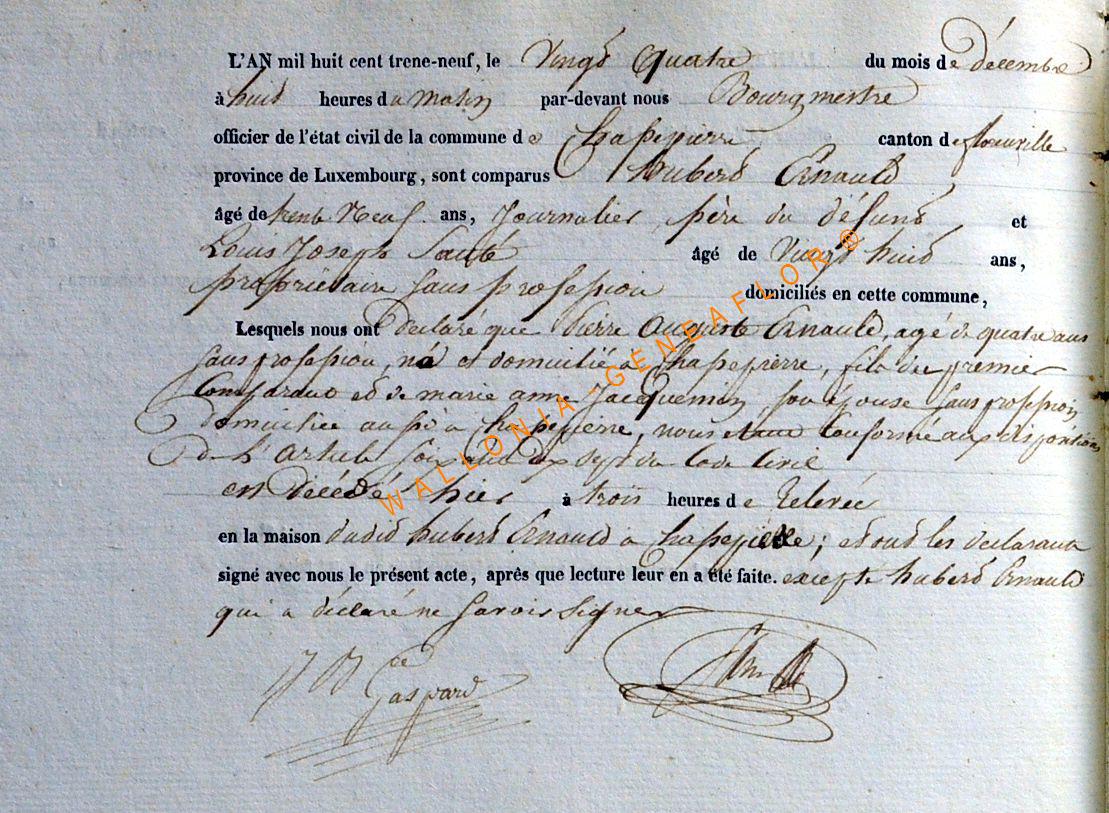 L'AN mil huit cent trene-neuf, le Vingt quatre du mois de décembre
à huit heures du Matin par-devant nous Bourgmestre
officier de l'état civil de la commune de Chassepierre canton de florenville
province de Luxembourg, sont comparus hubert Arnould
âgé de trente Neuf ans, Journalier, père du défunt et
Louis Joseph âgé de Vingt huit ans,
propriétaire sans profession domiciliés en cette commune,
Lesquels nous ont déclaré que Pierre Auguste Arnould, agé de quatre ans
sans profession, né et domicilié à Chassepierre, fils du premier
Comparant et de marie anne Jacquemin, son épouse sans profession
domiciliée aussi à Chassepierre, nous conformé aux dispositions
de l'Article Soixante dix Sept du Code Civil
est décédé hier à trois heures de Relevée
en la maison dudit hubert Arnould à Chassepierre; et ont les déclarants
signé avec nous le présent acte, après que lecture leur en a été faite. excepté hubert Arnould
qui a déclaré ne savoir signer
Gaspard
WALLONIA-GENEAFLOR®